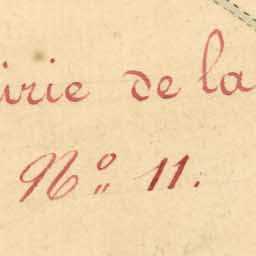 irie de la
Nº 11.